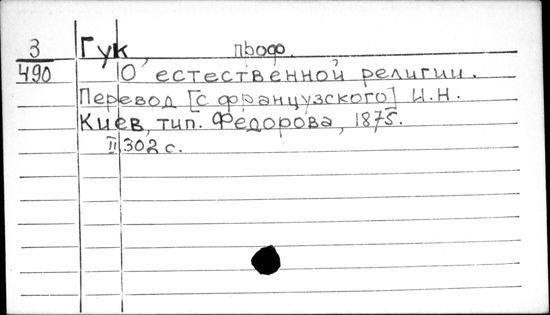 3 Гук, проф.
490 О естественной религии.
Перевод [с французского] И.Н.
Киев, тип. Федорова, 1875.
II 302 с.